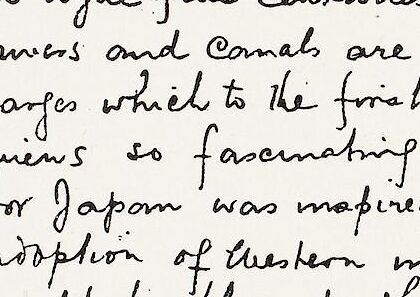 rivers and Canals are
arges which to the first
views so fascinating
or Japan was inspire
adoption of Western